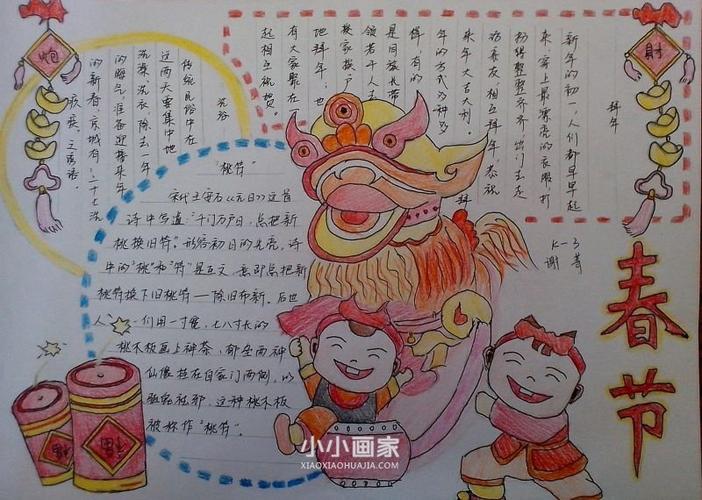 春节
拜年
新年的初一，人们都早早起
来，穿上最漂亮的衣服，打
扮得整整齐齐，出门去走
访亲友，相互拜年，恭祝
来年大吉大利。拜
年的方式多种多
样，有的
是同族长带
领若干人去
挨家挨户
地拜年，也
有大家聚在一
起相互祝贺。
洗浴
传统民俗中在
这两天要集中地
洗澡、洗衣，除去一年
的晦气，准备迎接来年
的新春，京城有"二十七洗
疚疾"之谚语。
"桃符"
宋代王安石《元日》这首
诗中写道："千门万户日，总把新
桃换旧符。"形容初日的光亮。诗
中的"桃"和"符"是互文，意即总把新
桃符换下旧桃符－除旧布新。后世
人们用一寸宽，七八寸长的
桃木板画上神荼、郁垒两神
仙像挂在自家门两侧，以
驱鬼祛邪，这种桃木板
被称作"桃符"
K-3
谢菁
炮
射
福
福
小小画家
XIAOXIAOHUAJIA.COM